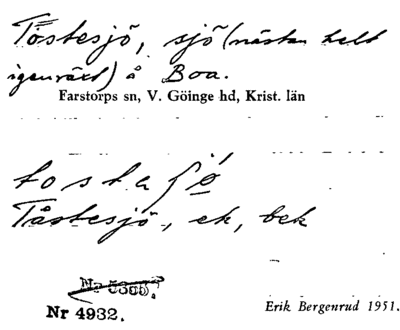 Tostesjö, sjö (nästan helt
igenväxt) å Boa.
Farstorps sn, V. Göinge hd, Krist. län
Tåstesjö, ek, bek
Nr 4932.
Erik Bergenrud 1951.